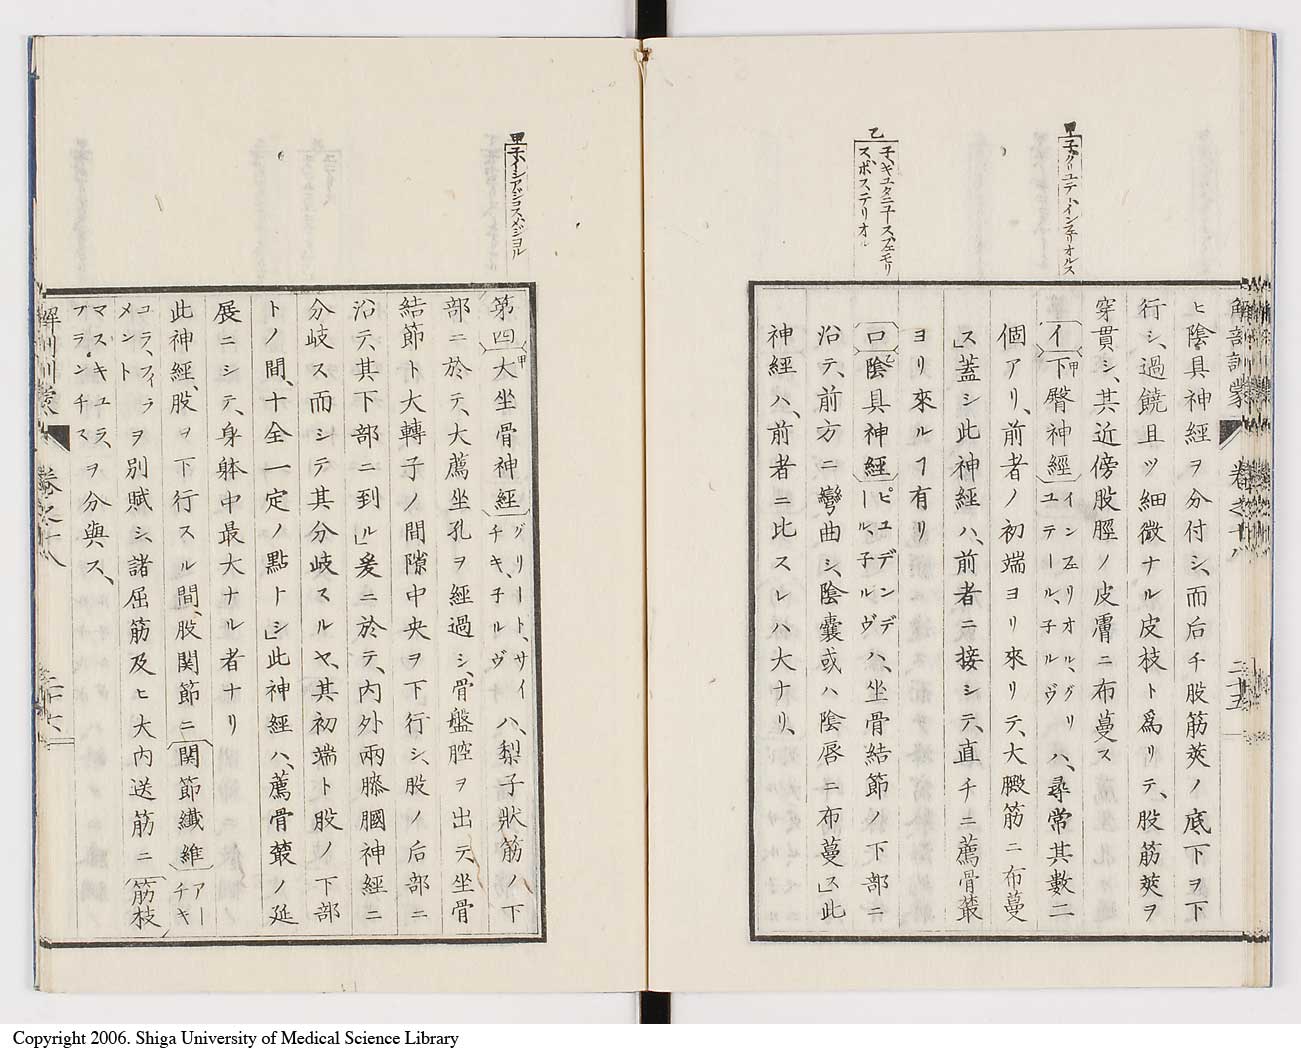 解剖訓蒙
卷之十八
二十五
甲
子、グリユテートインフェリオルス
乙
子、キユタニユース、フェモリ
ス、ポステリオル
ヒ陰具神經ヲ分付シ、而后チ股筋莢ノ底、下ヲ下
行シ、過饒且ツ細微ナル皮枝ト爲リテ、股筋莢ヲ
穿貫シ、其近傍股脛ノ皮膚ニ布蔓ス
イ 下臀神經 インフェリオル、グリ
ユテール、子ルヴ ハ、尋常其數二
個アリ、前者ノ初端ヨリ來リテ、大臀筋ニ布蔓
ス」蓋シ此神經ハ、前者ニ接シテ、直チニ薦骨叢
ヨリ來ルヿ有リ
口 陰具神經 ピユデンデ
ール、子ルヴ ハ、坐骨結節ノ下部ニ
沿テ、前方ニ彎曲シ、陰囊或ハ陰唇ニ布蔓ス」此
神經ハ、前者ニ比スレハ大ナリ、
甲
子、イシアジコス、メジヨル
第四 大坐骨神經 グリート、サイ
チキ、子ルヴ ハ、梨子狀筋ノ下
部ニ於テ、大薦坐孔ヲ經過シ、骨盤腔ヲ出テ、坐骨
結節ト大轉子ノ間隙中央ヲ下行シ、股ノ后部ニ
沿テ、其下部ニ到ル」爰ニ於テ、內外兩膝膕神經ニ
分岐ス而シテ其分岐スルヤ、其初端ト股ノ下部
トノ間、十全一定ノ點トシ」此神經ハ、薦骨叢ノ延
展ニシテ、身躰中最大ナル者ナリ
此神經、股ヲ下行スル間、股関節ニ 関節纎維 アー
チキ
コラ、フィラ
メント ヲ別賦シ、諸屈筋及ヒ大內送筋ニ 筋枝
マスキユラ、
ブランチス ヲ分與ス、
解剖訓蒙
卷之十八
二十六
Copyright 2006. Shiga University of Medical Science Library